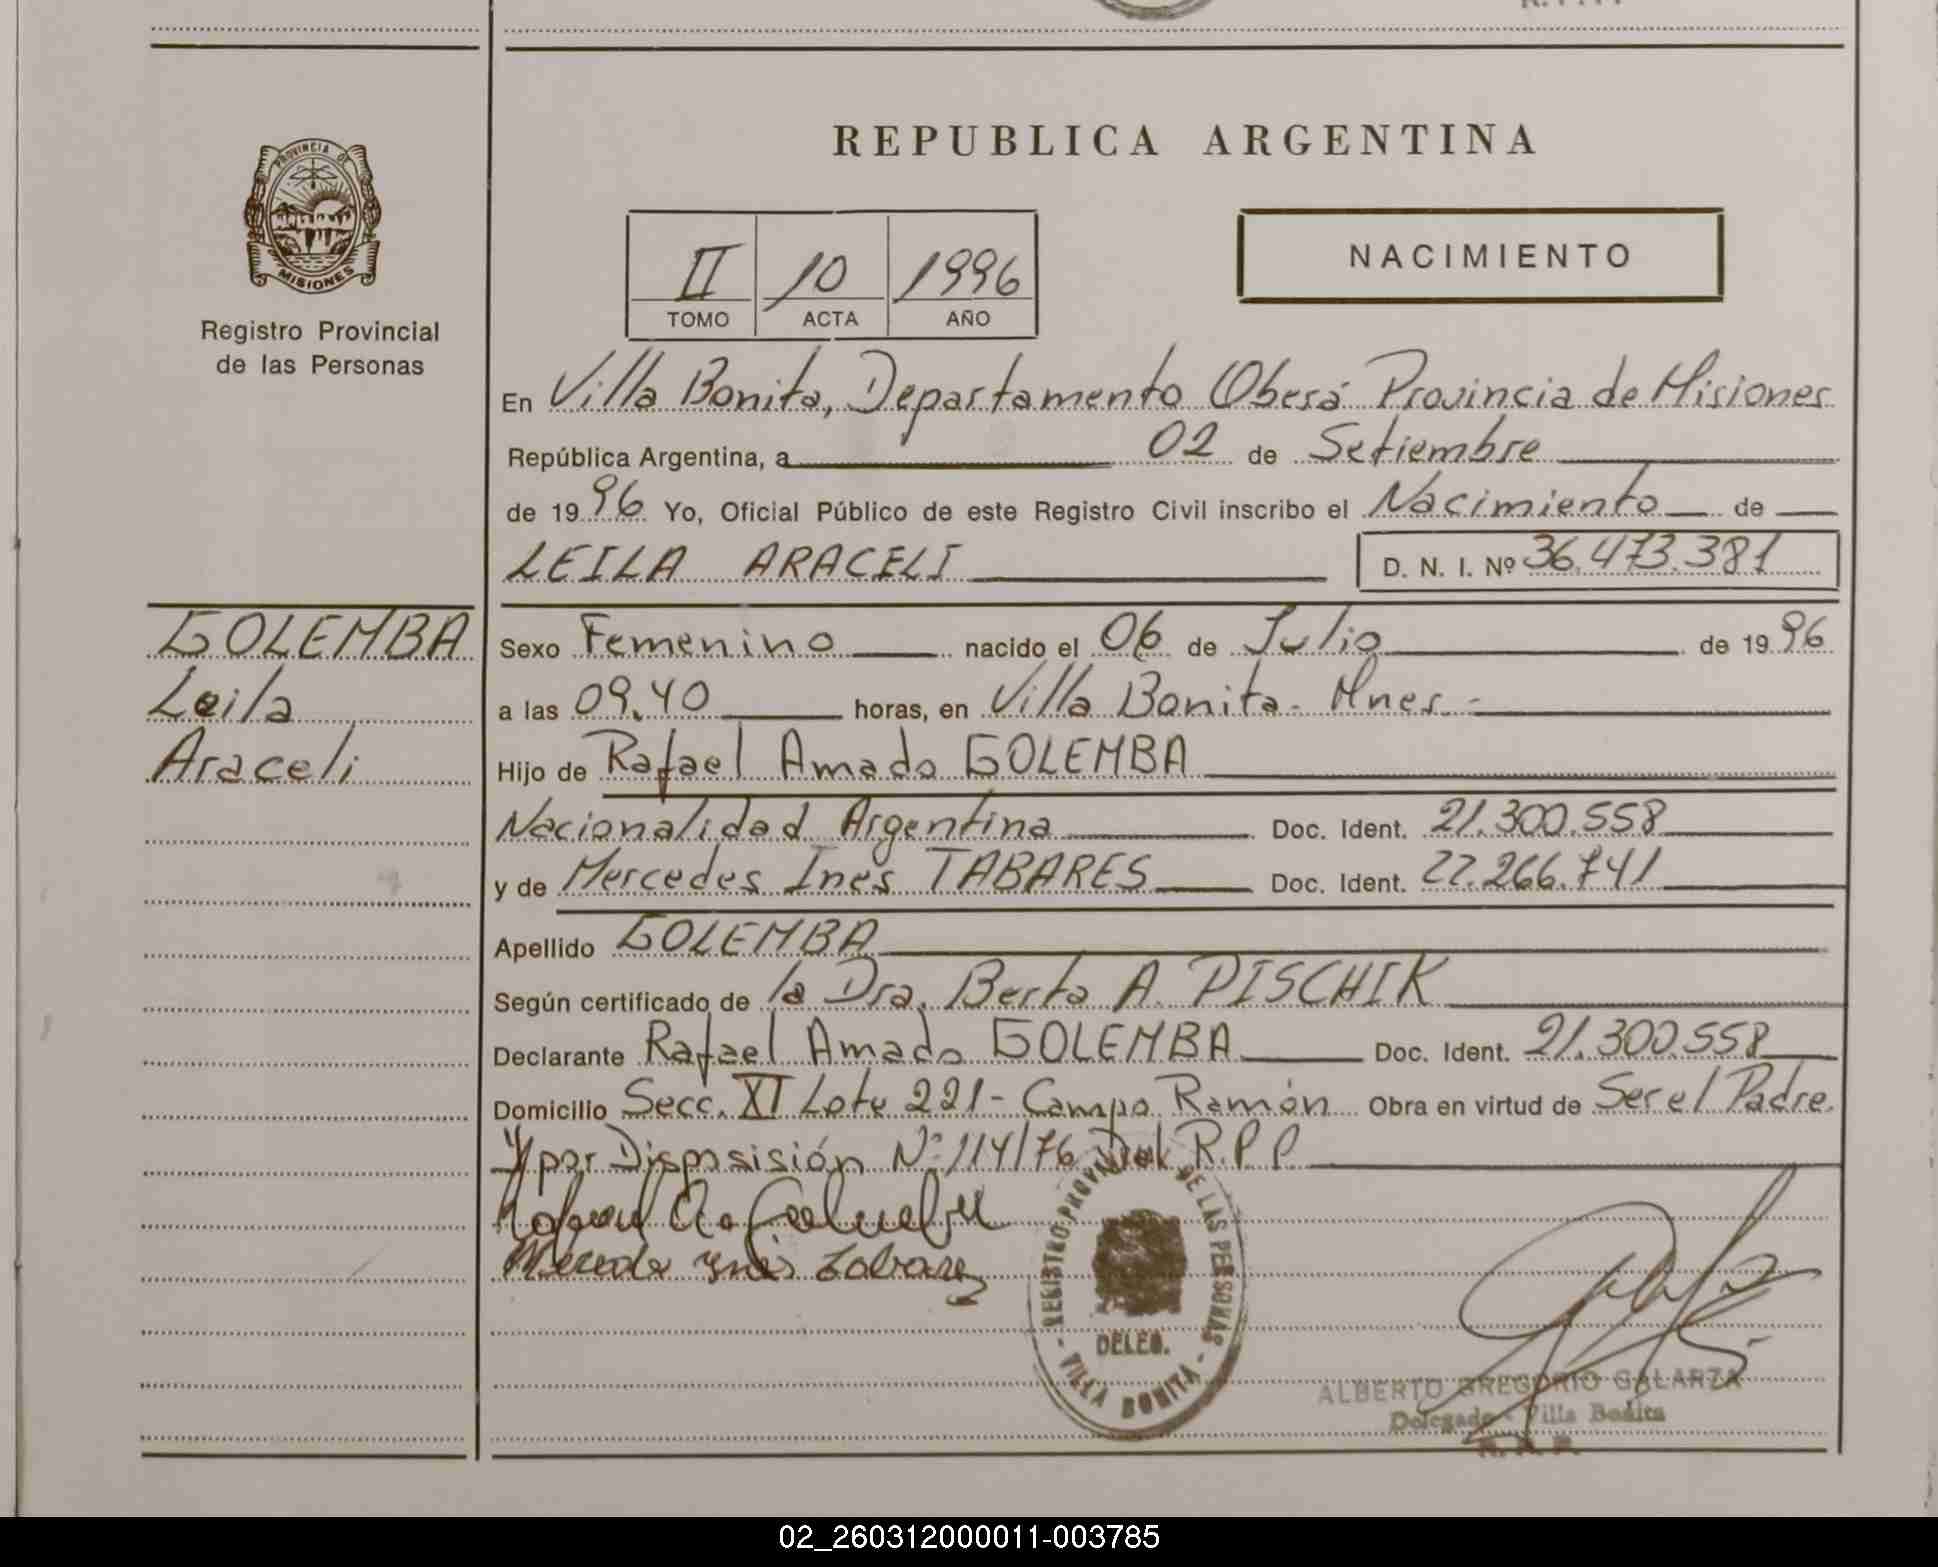 PROVINCIA DE
MISIONES
Registro Provincial
de las Personas
GOLEMBA
Leila
Araceli
REPUBLICA ARGENTINA
II 10 1996
TOMO ACTA AÑO
NACIMIENTO
En Villa Bonita, Departamento Oberá Provincia de Misiones
República Argentina, a 02 de Setiembre
de 1996 Yo, Oficial Público de este Registro Civil inscribo el Nacimiento de
LEILA ARACELI D. N. I. Nº 36.473.381
Sexo Femenino nacido el 06 de Julio de 1996
a las 09.40 horas, en Villa Bonita - Mnes.-
Hijo de Rafael Amado GOLEMBA
Nacionalidad Argentina Doc. Ident. 21.300.558
y de Mercedes Ines TABARES Doc. Ident. 22.266.741
Apellido GOLEMBA
Según certificado de la Dra. Berta A. PISCHIK
Declarante Rafael Amado GOLEMBA Doc. Ident. 21.300.558
Domicilio Secc. XI Lote 221 - Campo Ramón Obra en virtud de Ser el Padre.
Y por Disposisión Nº 114/76 del R.P.P.
Mercedes Ynés Tabarez
REGISTRO PROVINCIAL DE LAS PERSONAS
DELEG.
- VILLA BONITA -
ALBERTO GREGORIO GALARZA
Delegado - Villa Bonita
02_260312000011-003785